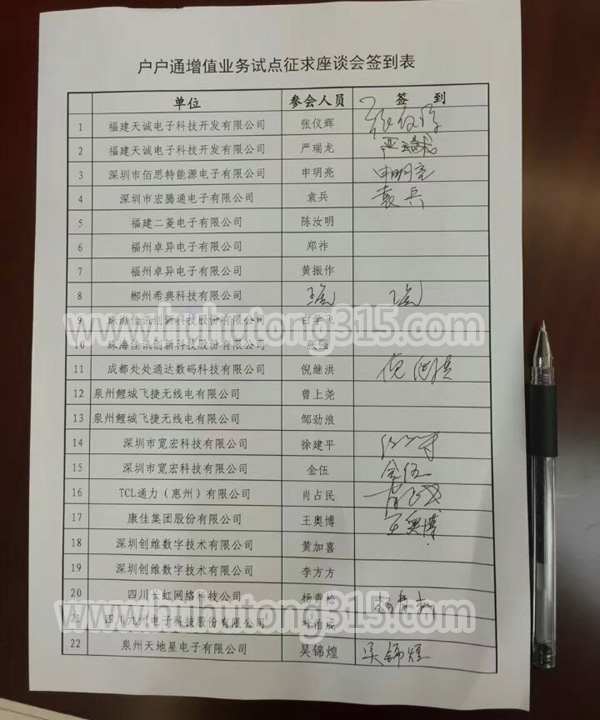 户户通增值业务试点征求座谈会签到表
单位 参会人员 签 到
1 福建天诚电子科技开发有限公司 张仪辉
2 福建天诚电子科技开发有限公司 严瑞龙 严瑞龙
3 深圳市佰思特能源电子有限公司 申明亮 申明亮
4 深圳市宏腾通电子有限公司 袁兵 袁兵
5 福建二菱电子有限公司 陈汝明
6 福州卓异电子有限公司 郑祚
7 福州卓异电子有限公司 黄振作
8 郴州希典科技有限公司
www.huhutong315.com
9 珠海佳讯创新科技股份有限公司
10 珠海佳讯创新科技股份有限公司
11 成都处处通达数码科技有限公司 倪继洪
12 泉州鲤城飞捷无线电有限公司 曾上尧
13 泉州鲤城飞捷无线电有限公司 邹劲浪
14 深圳市宽宏科技有限公司 徐建平
15 深圳市宽宏科技有限公司 金伍 金伍
16 TCL通力（惠州）有限公司 肖占民
17 康佳集团股份有限公司 王奥博 王奥博
18 深圳创维数字技术有限公司 黄加喜
19 深圳创维数字技术有限公司 李方方
20 四川长虹网络科技公司
www.huhutong315.com
21 四川九州电子科技股份有限公司
22 泉州天地星电子有限公司 吴锦煌 吴锦煌